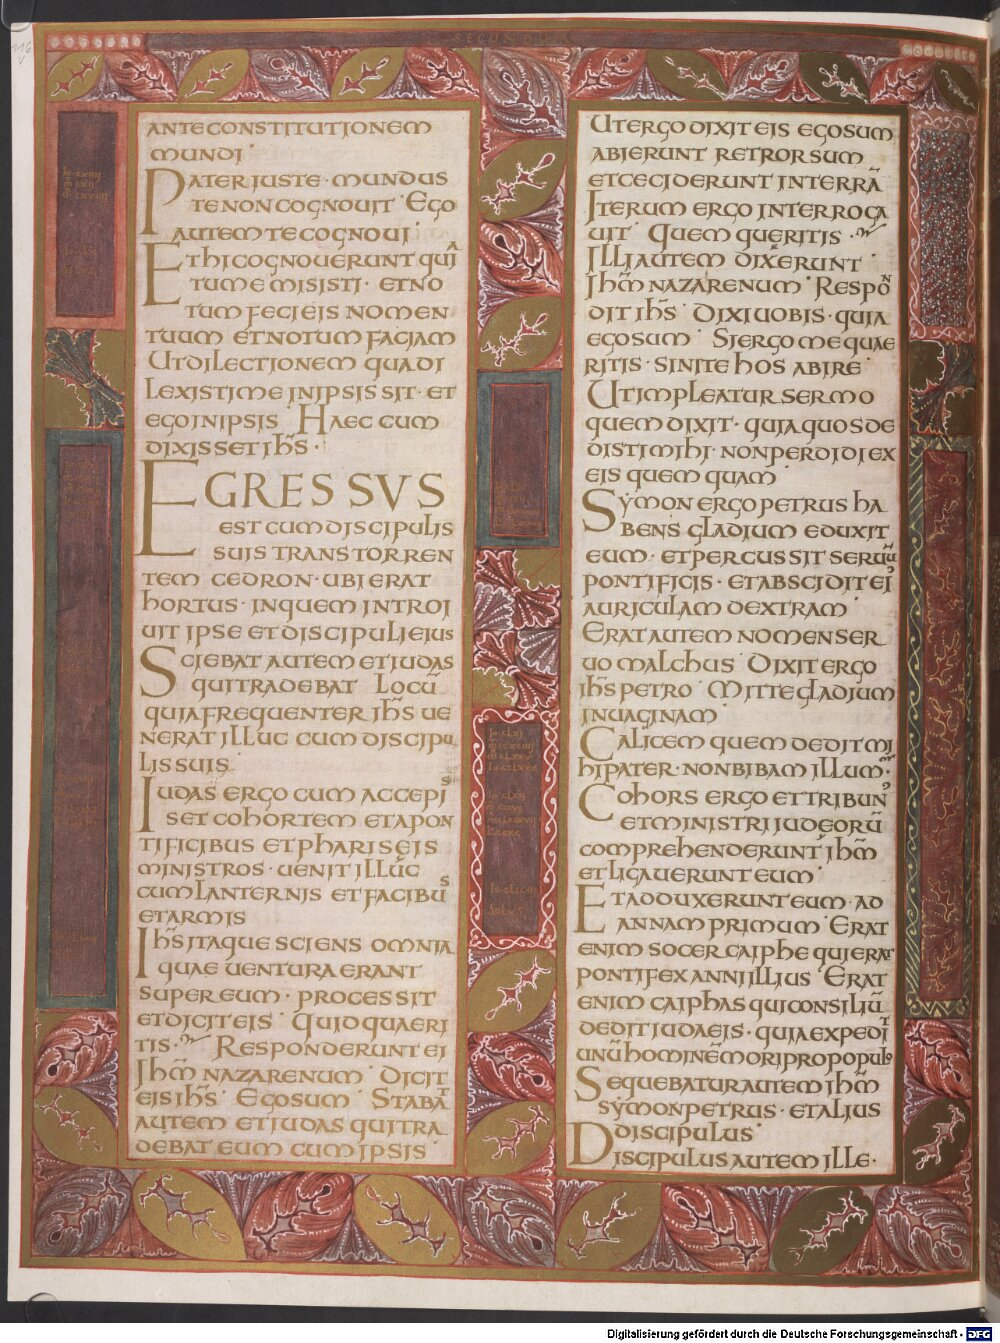 116
v
SECUNDUM
ANTECONSTITUTIONEM
MUNDI
PATER IUSTE · MUNDUS
TE NON COGNOUIT · EGO
AUTEM TE COGNOUI
ET HI COGNOUERUNT QUIA
TU ME MISISTI · ET NO
TUM FECI EIS NOMEN
TUUM ET NOTUM FACIAM
UT DILECTIONEM QUA DI
LEXISTI ME IN IPSIS SIT · ET
EGO IN IPSIS HAEC CUM
DIXISSET IHS̄ ·
EGRESSVS
EST CUM DISCIPULIS
SUIS TRANS TORREN
TEM CEDRON · UBI ERAT
HORTUS · IN QUEM INTROI
UIT IPSE ET DISCIPULI EIUS
SCIEBAT AUTEM ET IUDAS
QUI TRADEBAT LOCŪ
QUIA FREQUENTER IHS̄ UE
NERAT ILLUC CUM DISCIPU
LIS SUIS
IUDAS ERGO CUM ACCEPI
SSET COHORTEM ET A PON
TIFICIBUS ET PHARISEIS
MINISTROS · UENIT ILLUC
CUM LANTERNIS ET FACIBUS
ET ARMIS
IHS̄ ITAQUE SCIENS OMNIA
QUAE UENTURA ERANT
SUPER EUM · PROCESSIT
ET DICIT EIS QUID QUAERI
TIS · RESPONDERUNT EI
IHM̄ NAZARENUM DICIT
EIS IHS̄ EGO SUM STABAT
AUTEM ET IUDAS QUI TRA
DEBAT EUM CUM IPSIS
UT ERGO DIXIT EIS EGO SUM
ABIERUNT RETRORSUM
ET CECIDERUNT IN TERRĀ
ITERUM ERGO INTERROGA
UIT QUEM QUERITIS ·
ILLI AUTEM DIXERUNT
IHM̄ NAZARENUM RESPON
DIT IHS̄ DIXI UOBIS · QUIA
EGO SUM SI ERGO ME QUAE
RITIS · SINITE HOS ABIRE
UT IMPLEATUR SERMO
QUEM DIXIT · QUIA QUOS DE
DISTI MIHI · NON PERDIDI EX
EIS QUEM QUAM
SYMON ERGO PETRUS HA
BENS GLADIUM EDUXIT
EUM · ET PERCUSSIT SERUŪ
PONTIFICIS · ET ABSCIDIT EIꝰ
AURICULAM DEXTRAM
ERAT AUTEM NOMEN SER
UO MALCHUS DIXIT ERGO
IHS̄ PETRO MITTE GLADIUM
IN UAGINAM
CALICEM QUEM DEDIT MI
HI PATER · NON BIBAM ILLUM ·
COHORS ERGO ET TRIBUNꝰ
ET MINISTRI IUDEORŪ
COMPREHENDERUNT IHM̄
ET LIGAUERUNT EUM
ET ADDUXERUNT EUM · AD
ANNAM PRIMUM ERAT
ENIM SOCER CAIPHE QUI ERAT
PONTIFEX ANNI ILLIUS ERAT
ENIM CAIPHAS QUI CONSILIŪ
DEDIT IUDAEIS · QUIA EXPEDIT
UNŪ HOMINĒ MORI PRO POPULO
SEQUEBATUR AUTEM IHM̄
SYMON PETRUS · ET ALIUS
DISCIPULUS
DISCIPULUS AUTEM ILLE ·
Digitalisierung gefördert durch die Deutsche Forschungsgemeinschaft - DFG